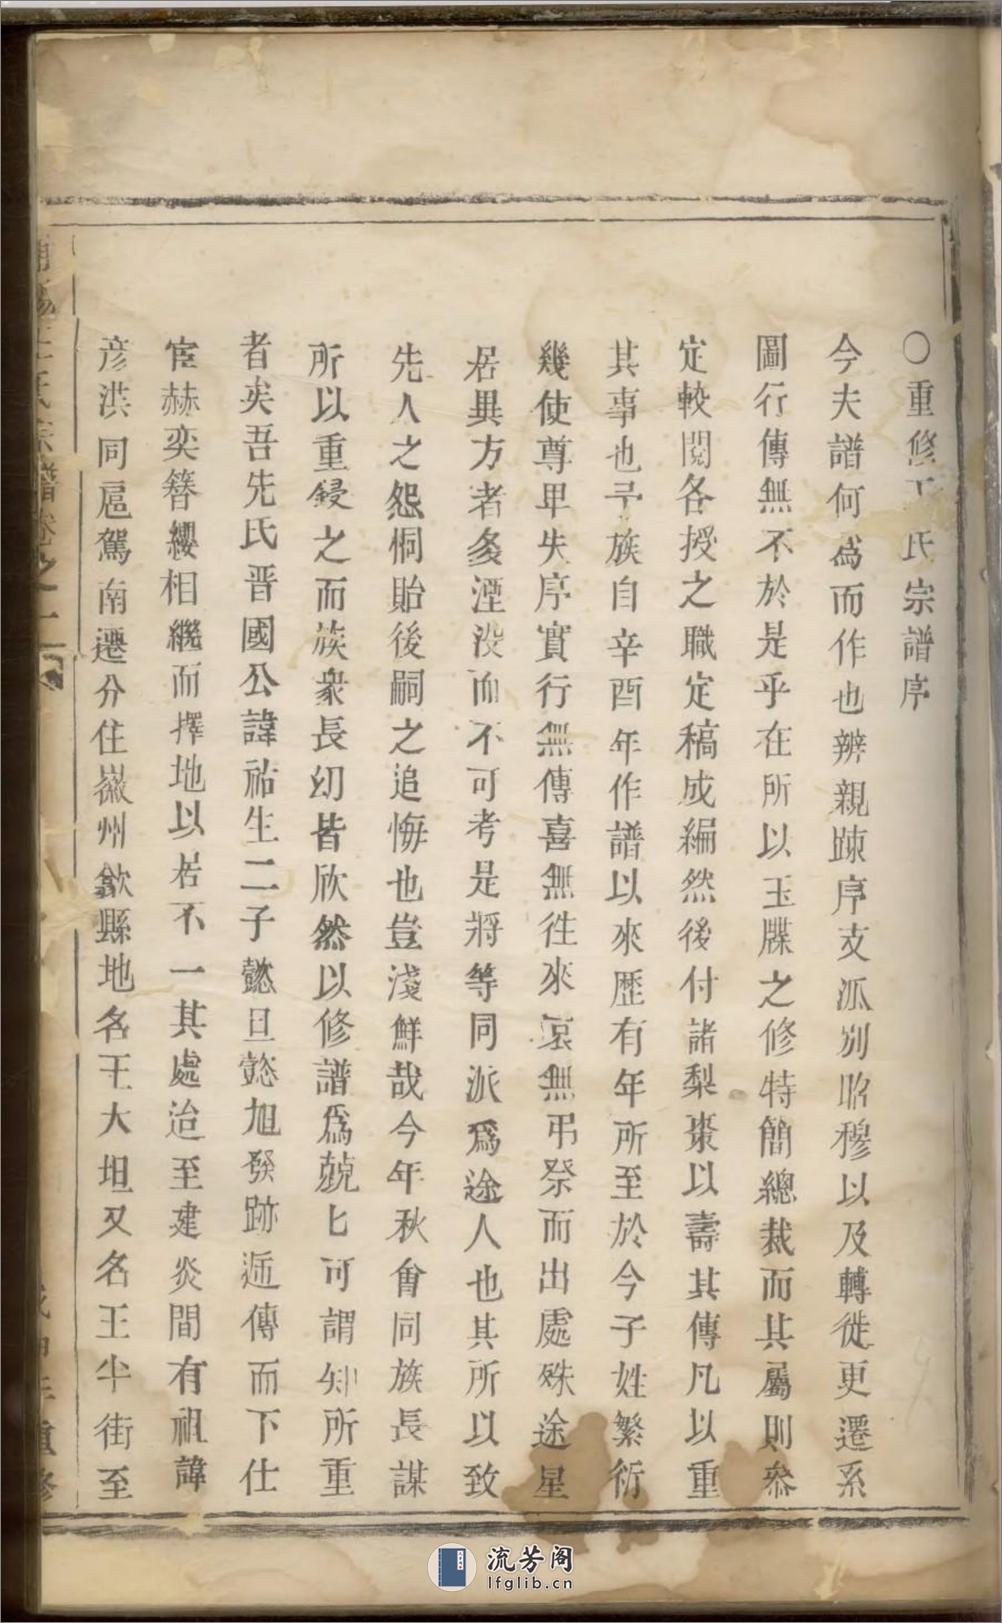 ○重修王氏宗譜序
今夫譜何為而作也辨親踈序支派別昭穆以及轉徙更遷系
圖行傳無不於是乎在所以玉牒之修特簡總裁而其屬則叅
定較閱各授之職定稿成編然後付諸梨棗以壽其傳凡以重
其事也予族自辛酉年作譜以來歷有年所至於今子姓繁衍
幾使尊卑失序實行無傳喜無徃來哀無弔祭而出處殊途星
居異方者多湮没而不可考是將等同派為途人也其所以致
先人之怨恫貽後嗣之追悔也豈淺鮮哉今年秋會同族長謀
所以重鋟之而族衆長幼皆欣然以修譜為兢匕可謂知所重
者矣吾先氏晋國公諱祐生二子懿旦懿旭發跡逓傳而下仕
宦赫奕簪纓相繼而擇地以居不一其處迨至建炎間有祖諱
彦洪同扈駕南遷分住徽州歙縣地名王大坦又名王半街至
王氏宗譜卷之一
戊申年重修
流芳阁
lfglib.cn